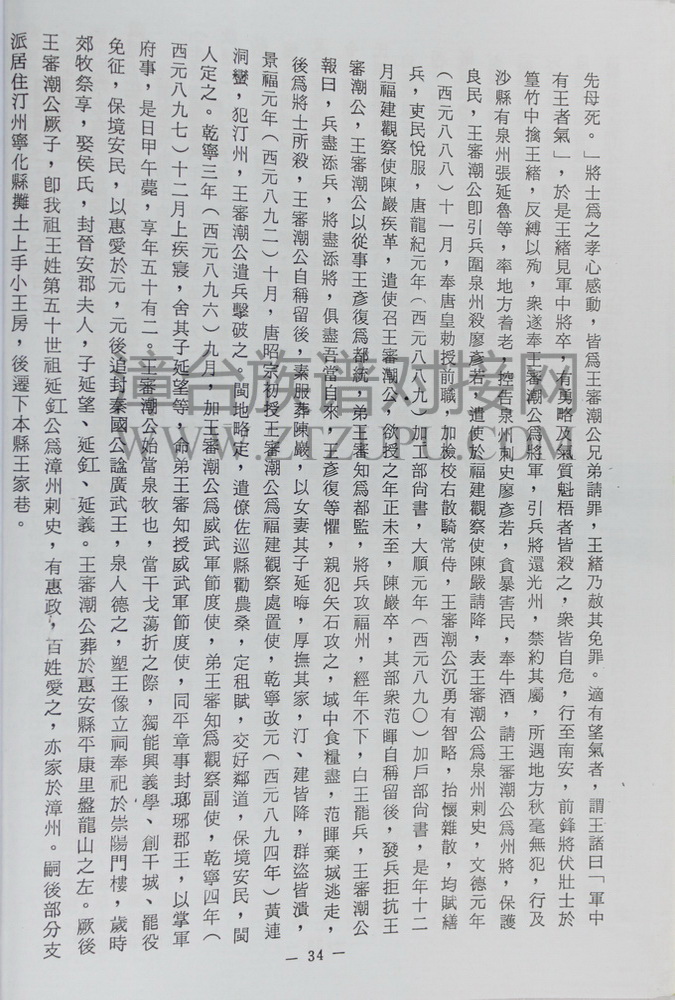 先母死。」將士爲之孝心感動，皆爲王審潮公兄弟請罪，王緒乃赦其免罪。適有望氣者，謂王諸曰「軍中
有王者氣」，於是王緒見軍中將卒，有勇略及氣質魁梧者皆殺之，衆皆自危，行至南安，前鋒將伏壯士於
篁竹中擒王緒，反縛以殉，衆遂奉王審潮公爲將軍，引兵將還光州，禁約其屬，所遇地方秋毫無犯，行及
沙縣有泉州張延魯等，率地方耆老，控告泉州刺史廖彥若，貪暴害民，奉牛酒，請王審潮公爲州將，保護
良民，王審潮公卽引兵圍泉州殺廖彥若，遣使於福建觀察使陳嚴請降，表王審潮公爲泉州刺史，文德元年
（西元八八八）十一月，奉唐皇勅授前職，加檢校右散騎常侍，王審潮公沉勇有智略，抬懷雜散，均賦繕
兵，吏民悅服，唐龍紀元年（西元八八九）加工部尙書，大順元年（西元八九〇）加戶部尙書，是年十二
月福建觀察使陳嚴疾革，遣使召王審潮公，欲授之年正未至，陳嚴卒，其部衆范暉自稱留後，發兵拒抗王
審潮公，王審潮公以從事王彥復爲都統，弟王審知爲都監，將兵攻福州，經年不下，白王罷兵，王審潮公
報曰，兵盡添兵，將盡添將，俱盡吾當自來，王彥復等懼，親犯矢石攻之，域中食糧盡，范暉棄城逃走，
後爲將士所殺，王審潮公自稱留後，素服葬陳嚴，以女妻其子延晦，厚撫其家，汀、建皆降，群盜皆潰，
景福元年（西元八九二）十月，唐昭宗初授王審潮公爲福建觀察處置使，乾寧改元（西元八九四年）黃連
洞蠻，犯汀州，王審潮公遣兵擊破之。閩地略定，遣僚佐巡縣勸農桑，定租賦，交好鄰道，保境安民，閩
人定之。乾寧三年（西元八九六）九月，加王審潮公爲威武軍節度使，弟王審知爲觀察副使，乾寧四年（
西元八九七）十二月上疾寢，舍其子延望等，命弟王審知授威武軍節度使，同平章事封瑯琊郡王，以掌軍
府事，是日甲午薨，享年五十有二。王審潮公始當泉牧也，當干戈蕩折之際，獨能興義學、創干城、罷役
免征，保境安民，以惠愛於元，元後追封秦國公諡廣武王，泉人德之，塑王像立祠奉祀於崇陽門樓，歲時
郊牧祭享，娶侯氏，封晉安郡夫人，子延望、延釭、延義。王審潮公葬於惠安縣平康里盤龍山之左。厥後
王審潮公厥子，卽我祖王姓第五十世祖延釭公爲漳州刺史，有惠政，百姓愛之，亦家於漳州。嗣後部分支
派居住汀州寧化縣攤土上手小王房，後遷下本縣王家巷。
— 34 —
童台族谱对接网
WWW.ZTZUPU.COM